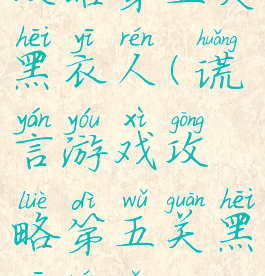 hēi yī rén huǎng
黑衣人(谎
yán yóu xì gōng
言游戏攻
lüè dì wǔ guān hēi
略第五关黑